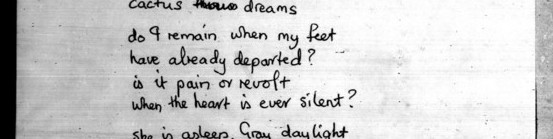 cactus dreams
do I remain when my feet
have already departed?
is it pain or revolt
when the heart is ever silent?
she is asleep. Gray daylight